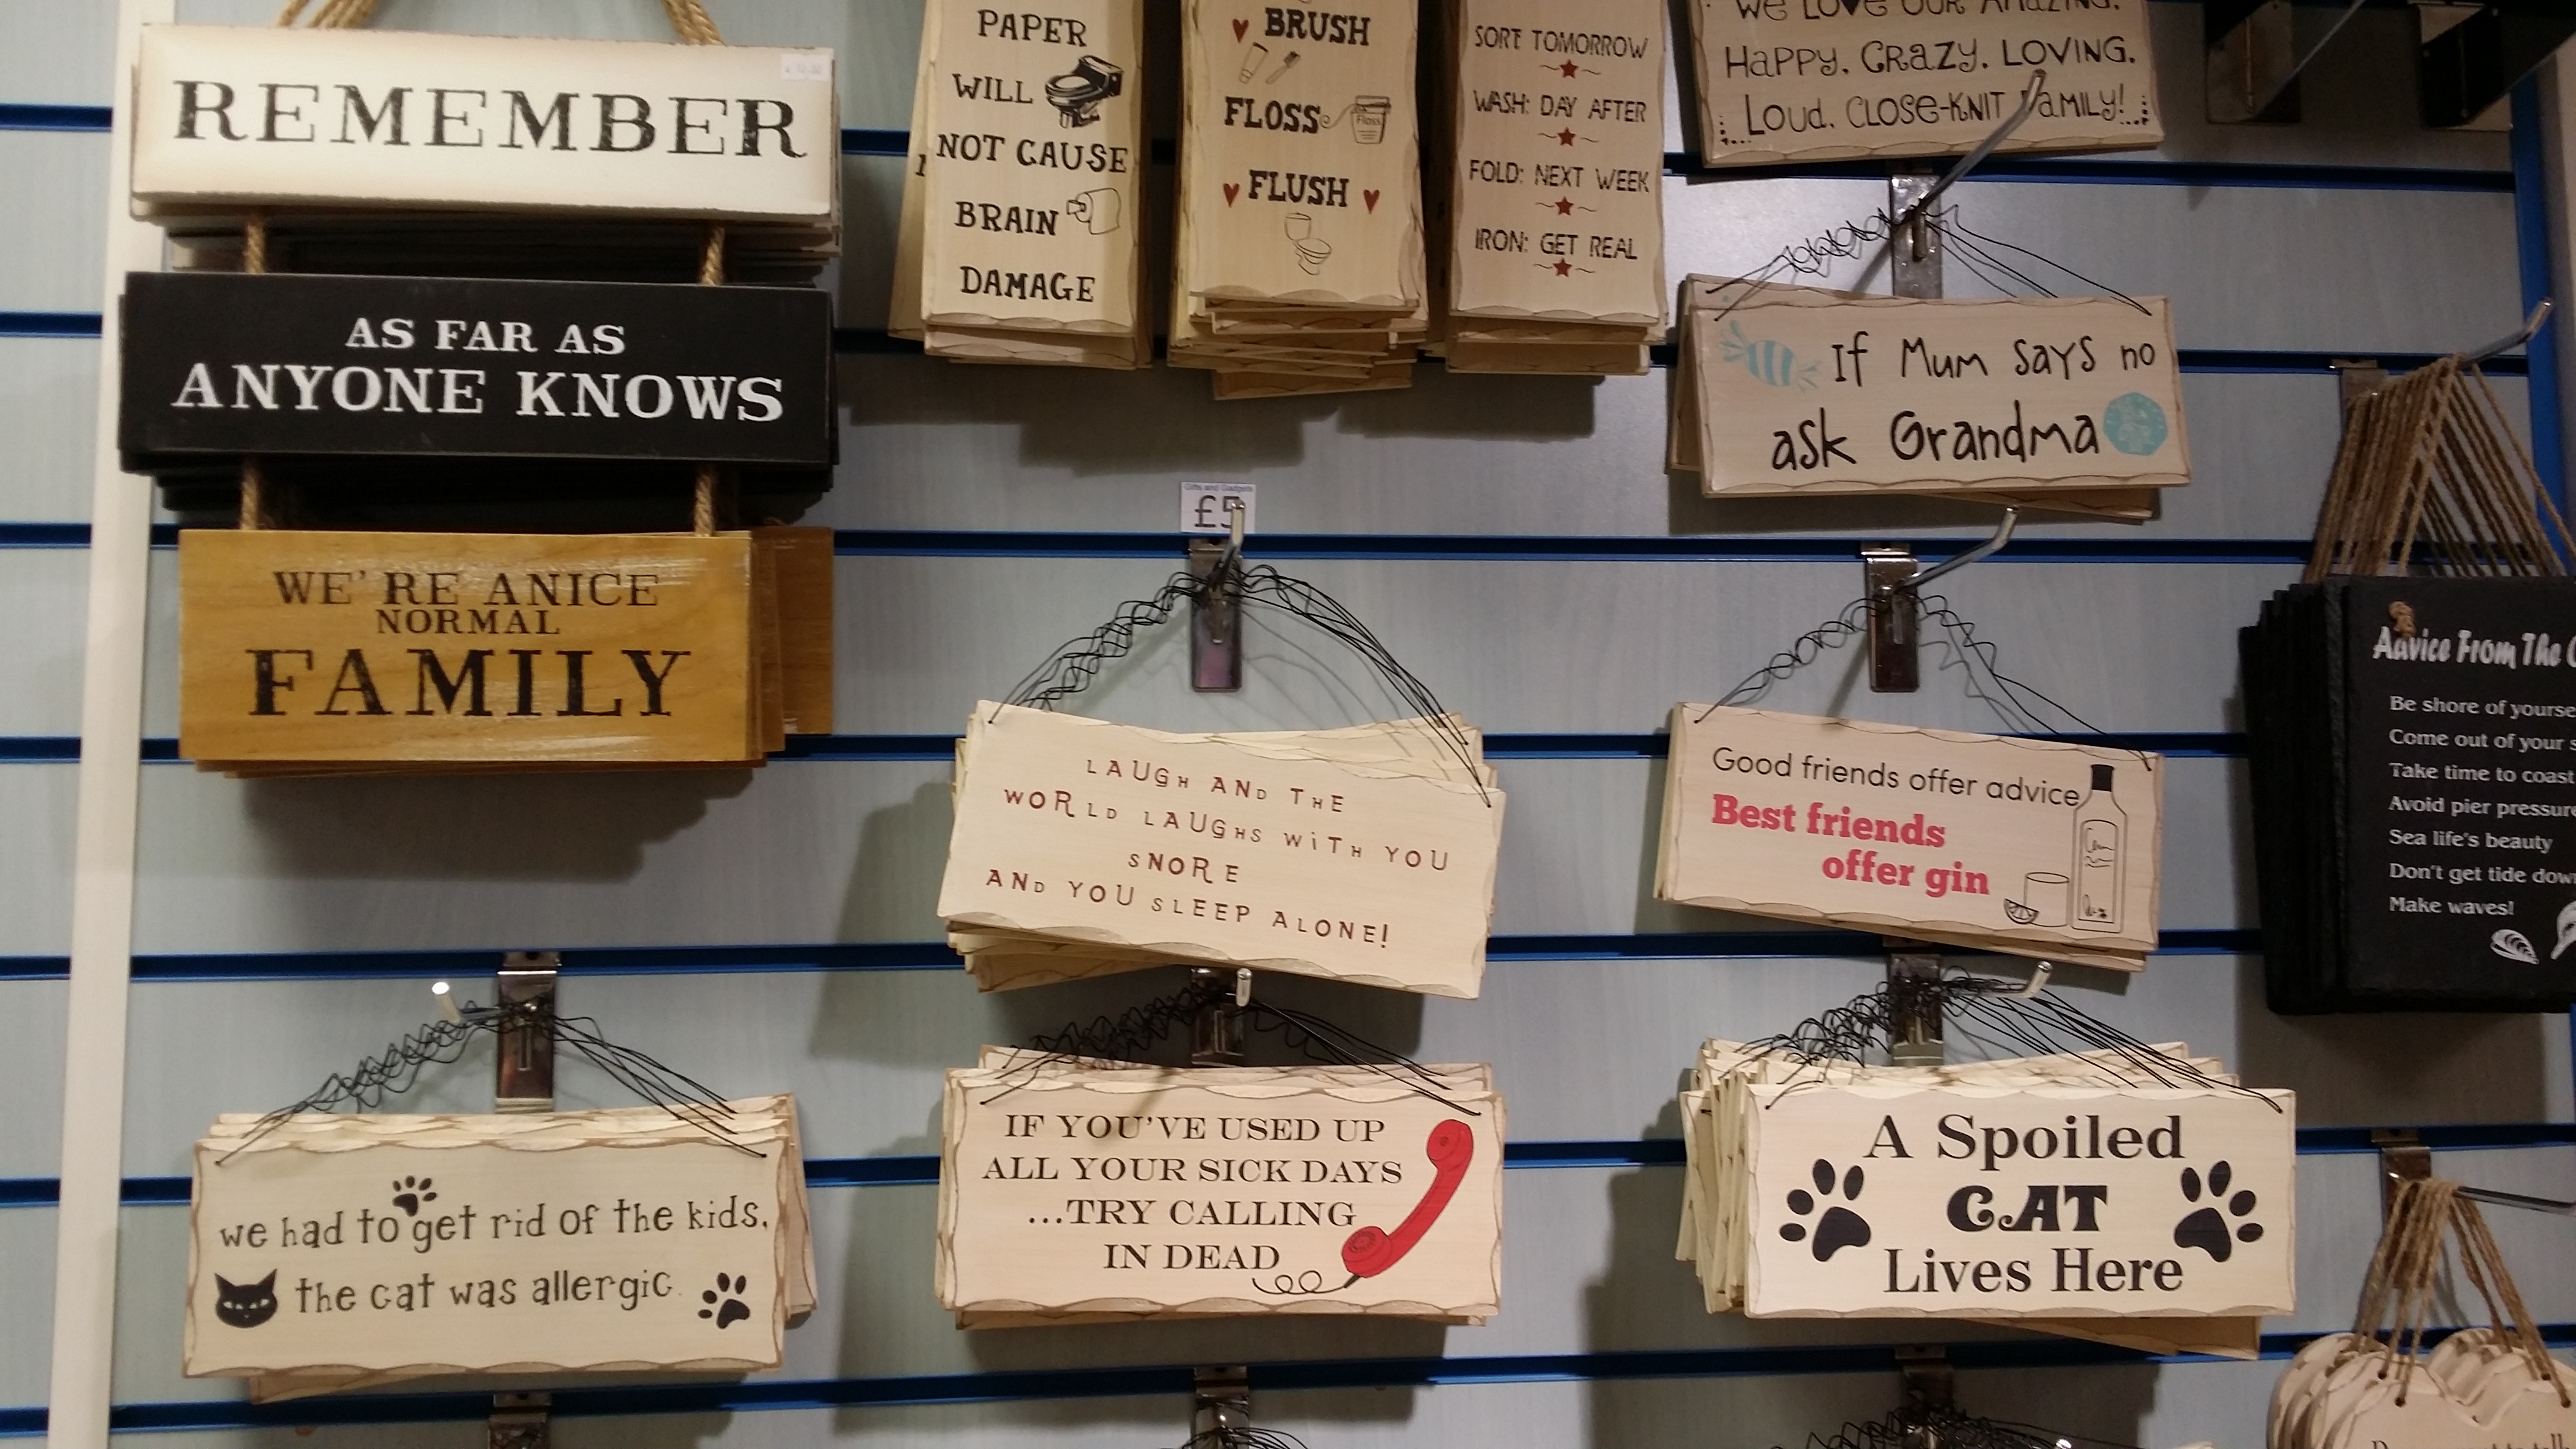 REMEMBER
AS FAR AS
ANYONE KNOWS
WE'RE A NICE
NORMAL
FAMILY
PAPER
WILL
NOT CAUSE
BRAIN
DAMAGE
BRUSH
FLOSS
Floss
FLUSH
SORT TOMORROW
WASH: DAY AFTER
FOLD: NEXT WEEK
IRON: GET REAL
WE LOVE OUR AMAZING.
HAPPY. CRAZY. LOVING.
LOUD. CLOSE-KNIT FAMILY!
If Mum says no
ask Grandma
Gifts and Gadgets
£5
LAUGH AND THE
WORLD LAUGHS WITH YOU
SNORE
AND YOU SLEEP ALONE!
Good friends offer advice
Best friends
offer gin
Advice From The
Be shore of yourse
Come out of your s
Take time to coast
Avoid pier pressur
Sea life's beauty
Don't get tide dow
Make waves!
we had to get rid of the kids,
the cat was allergic.
IF YOU'VE USED UP
ALL YOUR SICK DAYS
...TRY CALLING
IN DEAD
A Spoiled
CAT
Lives Here